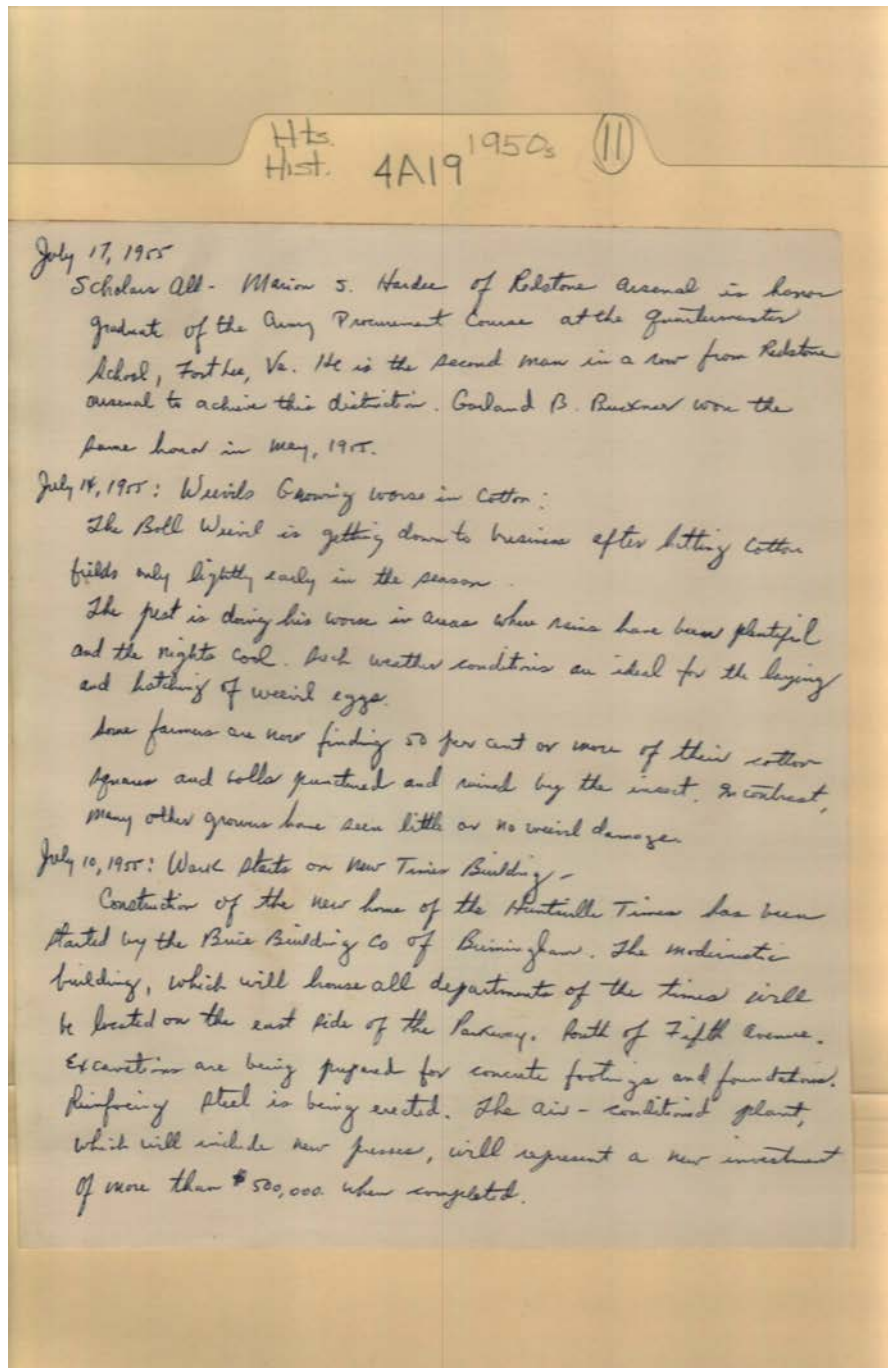 Hts. 1950s 11
Hist. 4A19
July 17, 1955
Scholars All - Marion S. Hardee of Redstone Arsenal is honor
graduate of the Army Procurement Course at the Quartermaster
School, Fort Lee, Va. He is the second man in a row from Redstone
arsenal to achieve this distinction. Garland B. Buckner won the
same honor in May, 1955.
July 14, 1955: Weevils Growing worse in Cotton:
The Boll Weevil is getting down to business after hitting cotton
fields only lightly early in the season.
The pest is doing his worse in areas where rains have been plentiful
and the nights cool. Such weather conditions are ideal for the laying
and hatching of weevil eggs.
Some farmers are now finding 50 per cent or more of their cotton
squares and bolls punctured and ruined by the insect. In contrast,
many other growers have seen little or no weevil damage.
July 10, 1955: Work starts on New Times Building -
Construction of the new home of the Huntsville Times has been
started by the Brice Building Co of Birmingham. The modernistic
building, which will house all departments of the times will
be located on the east side of the Parkway. South of Fifth Avenue.
Excavations are being prepared for concrete footings and foundations.
Reinforcing steel is being erected. The air-conditioned plant,
which will include new presses, will represent a new investment
of more than $500,000. when completed.